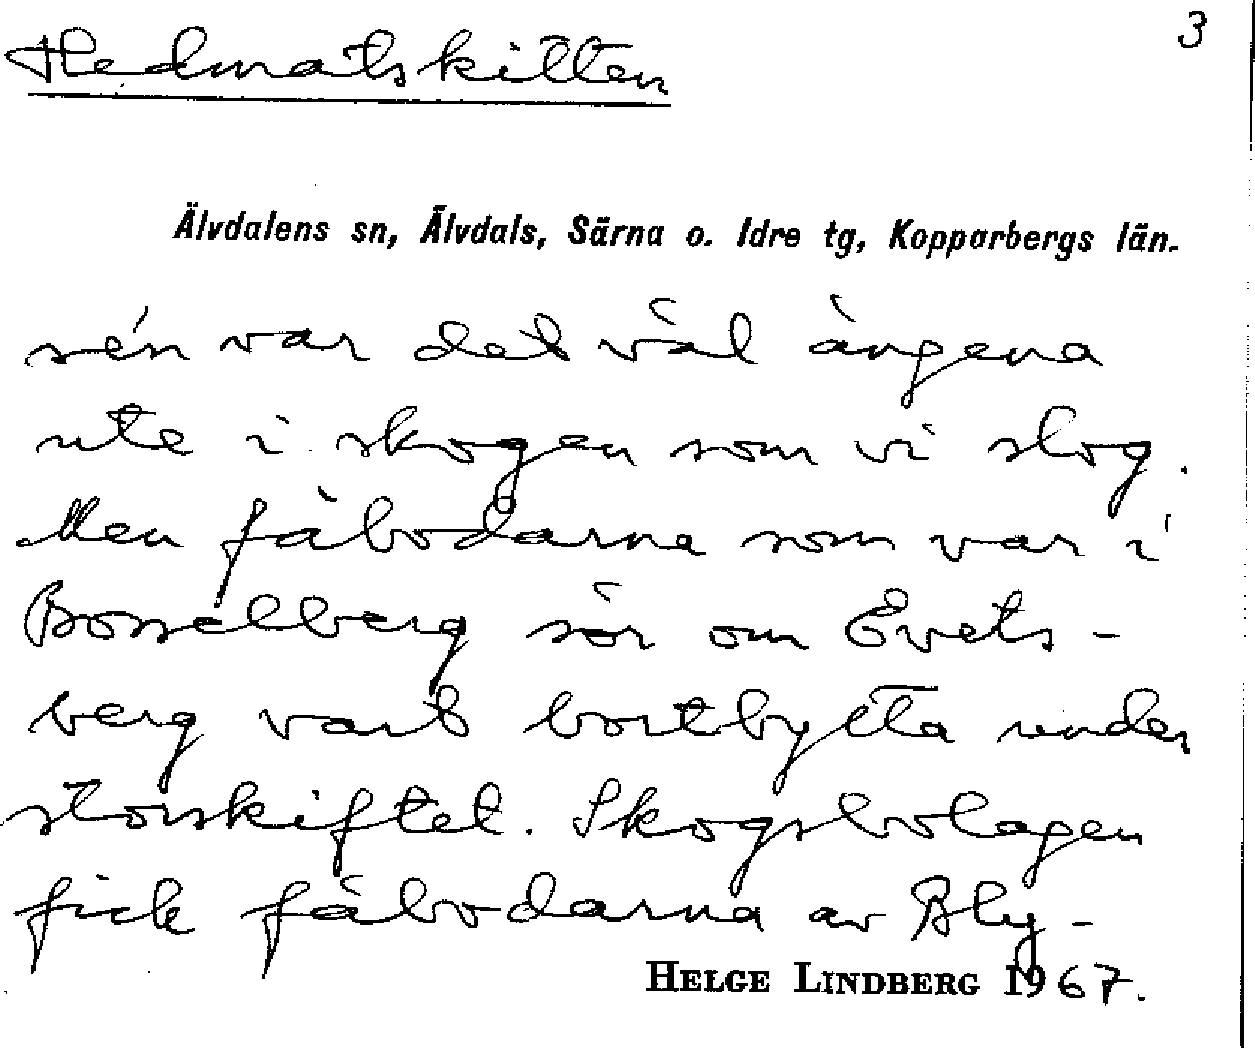 Hedmatskitten 3
Älvdalens sn, Älvdals, Särna o. Idre tg, Kopparbergs län.
sén var det väl ängena
ute i skogen som vi slog.
Men fäbodarna som var i
Bosselberg sör om Evets-
berg vart bortbytta under
storskiftet. Skogsbolagen
fick fäbodarna av Bly-
HELGE LINDBERG 1967.